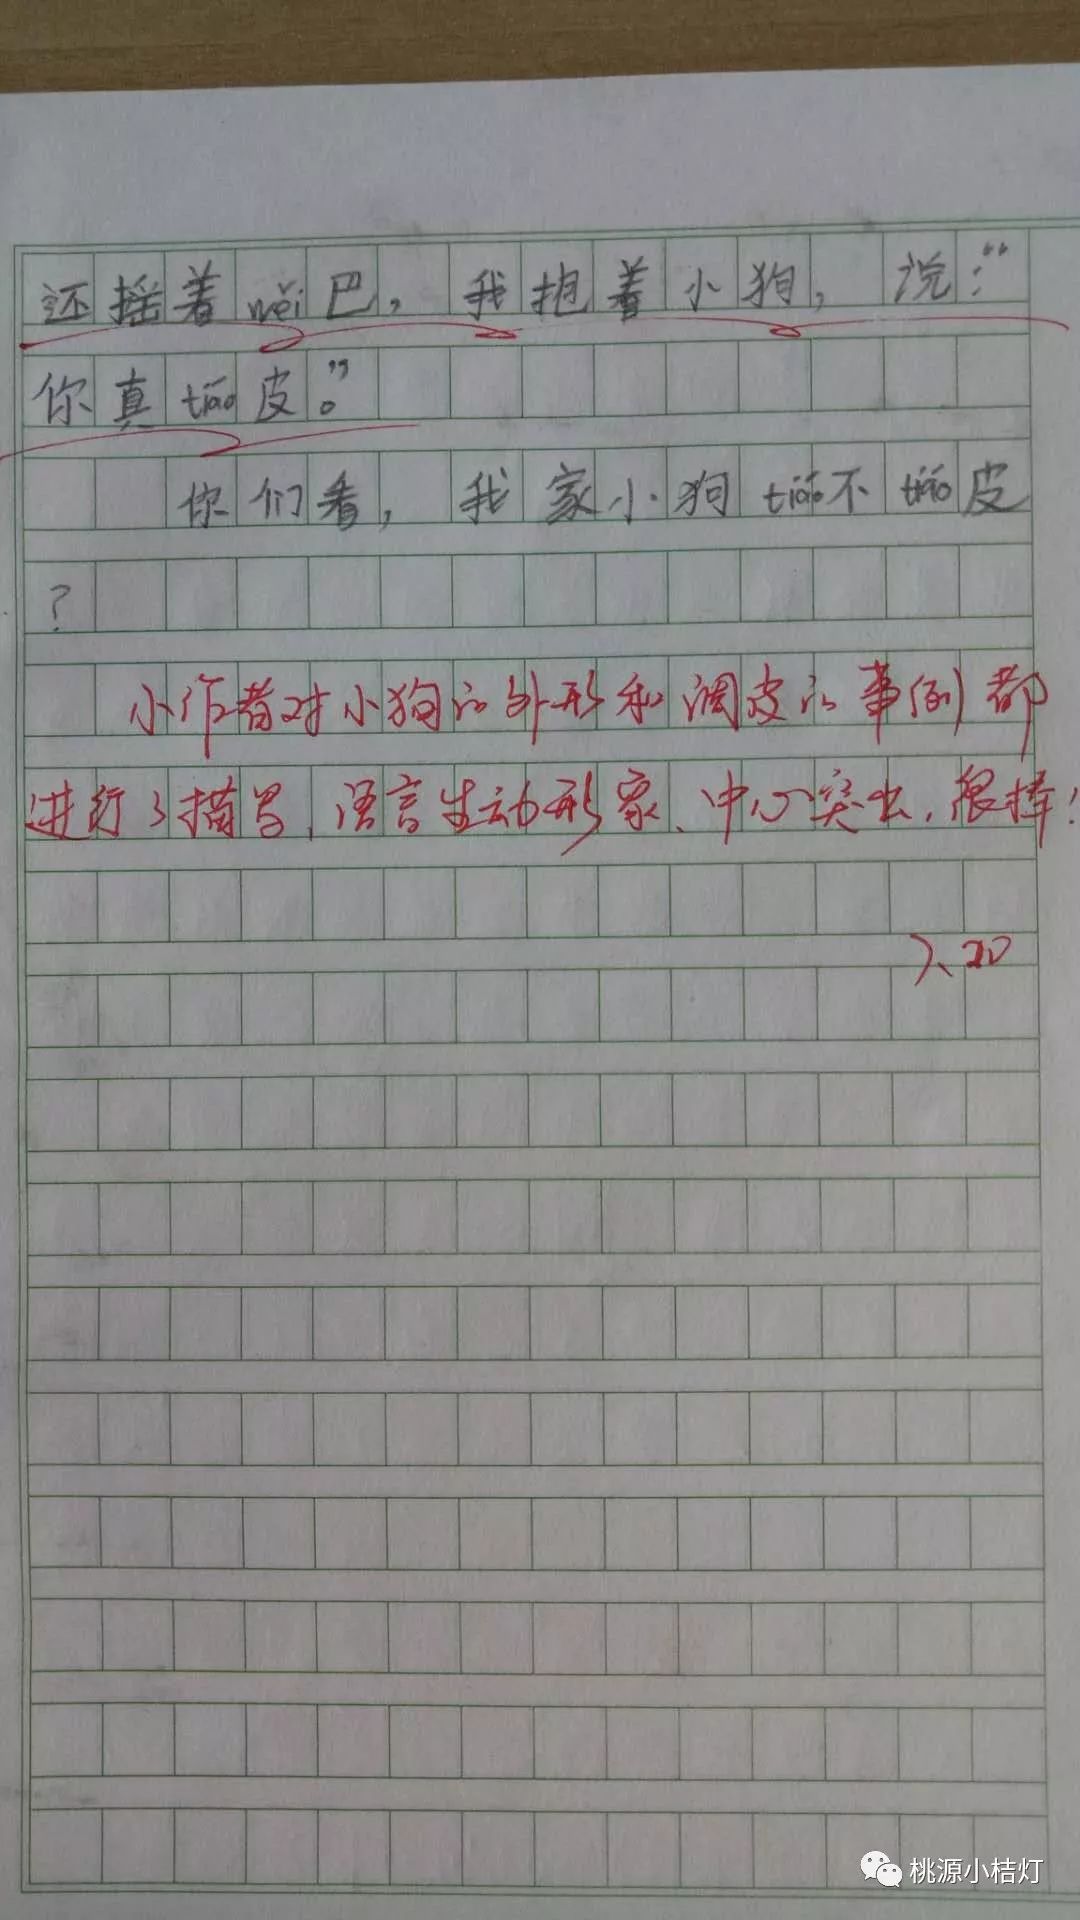 还摇着wěi巴，我抱着小狗，说：“
你真tiáo皮。”
你们看，我家小狗tiáo不tiáo皮
？
小作者对小狗的外形和调皮的事例都
进行了描写，语言生动形象、中心突出，很棒！
桃源小桔灯